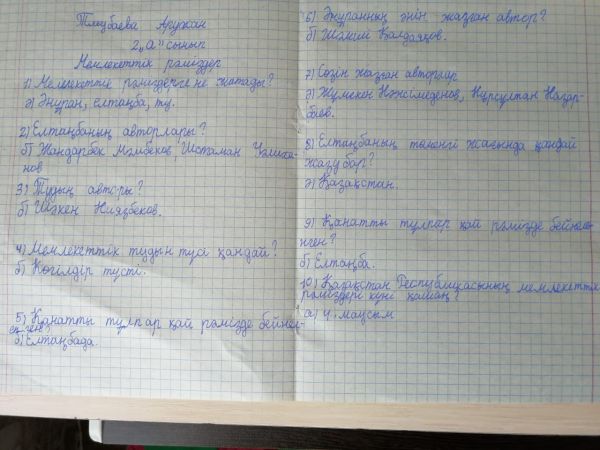 Тлеубаева Аружан
2 "а" сынып
Мемлекеттік рәміздер
1) Мемлекеттік рәміздерге не жатады?
ә) Әнұран, елтаңба, ту.
2) Елтаңбаның авторлары?
б) Жандарбек Мәлібеков, Шотаман Уәлиха-
нов
3) Тудың авторы?
б) Шәкен Ниязбеков.
4) Мемлекеттік тудың түсі қандай?
б) Көгілдір түсті.
5) Қанатты тұлпар қай рәмізде бейнел-
енген?
б) Елтаңбада.
6) Әнұранның әнін жазған автор?
б) Шәмші Қалдаяқов.
7) Сөзін жазған авторлар
ә) Жұмекен Нәжімеденов, Нұрсұлтан Назар-
баев.
8) Елтаңбаның төменгі жағында қандай
жазу бар?
ә) Қазақстан.
9) Қанатты тұлпар қай рәмізде бейнеле-
нген?
б) Елтаңба.
10) Қазақстан Республикасының мемлекеттік
рәміздері күні қашан?
а) 4 маусым